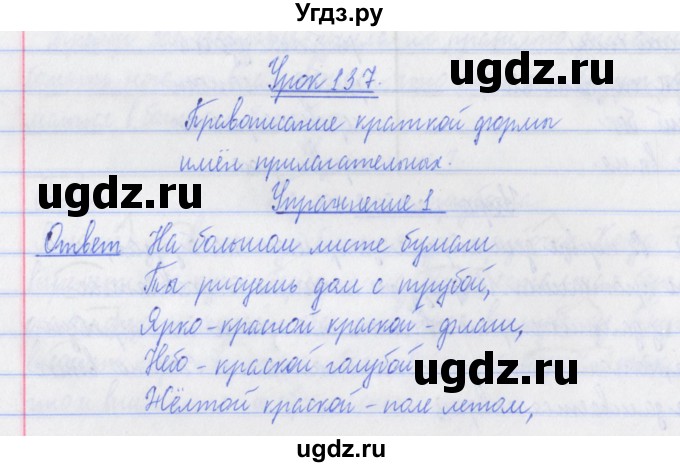 Угдз.ру
ugdz.ru
Урок 137.
Правописание краткой формы
имён прилагательных.
ugdz.ru
Упражнение 1
Ответ На большом листе бумаги
ugdz.ru
Ты рисуешь дом с трубой,
Ярко-красной краской - флаги,
Небо - краской голубой
ugdz.ru
Жёлтой краской - поле летом,
ugdz.ru